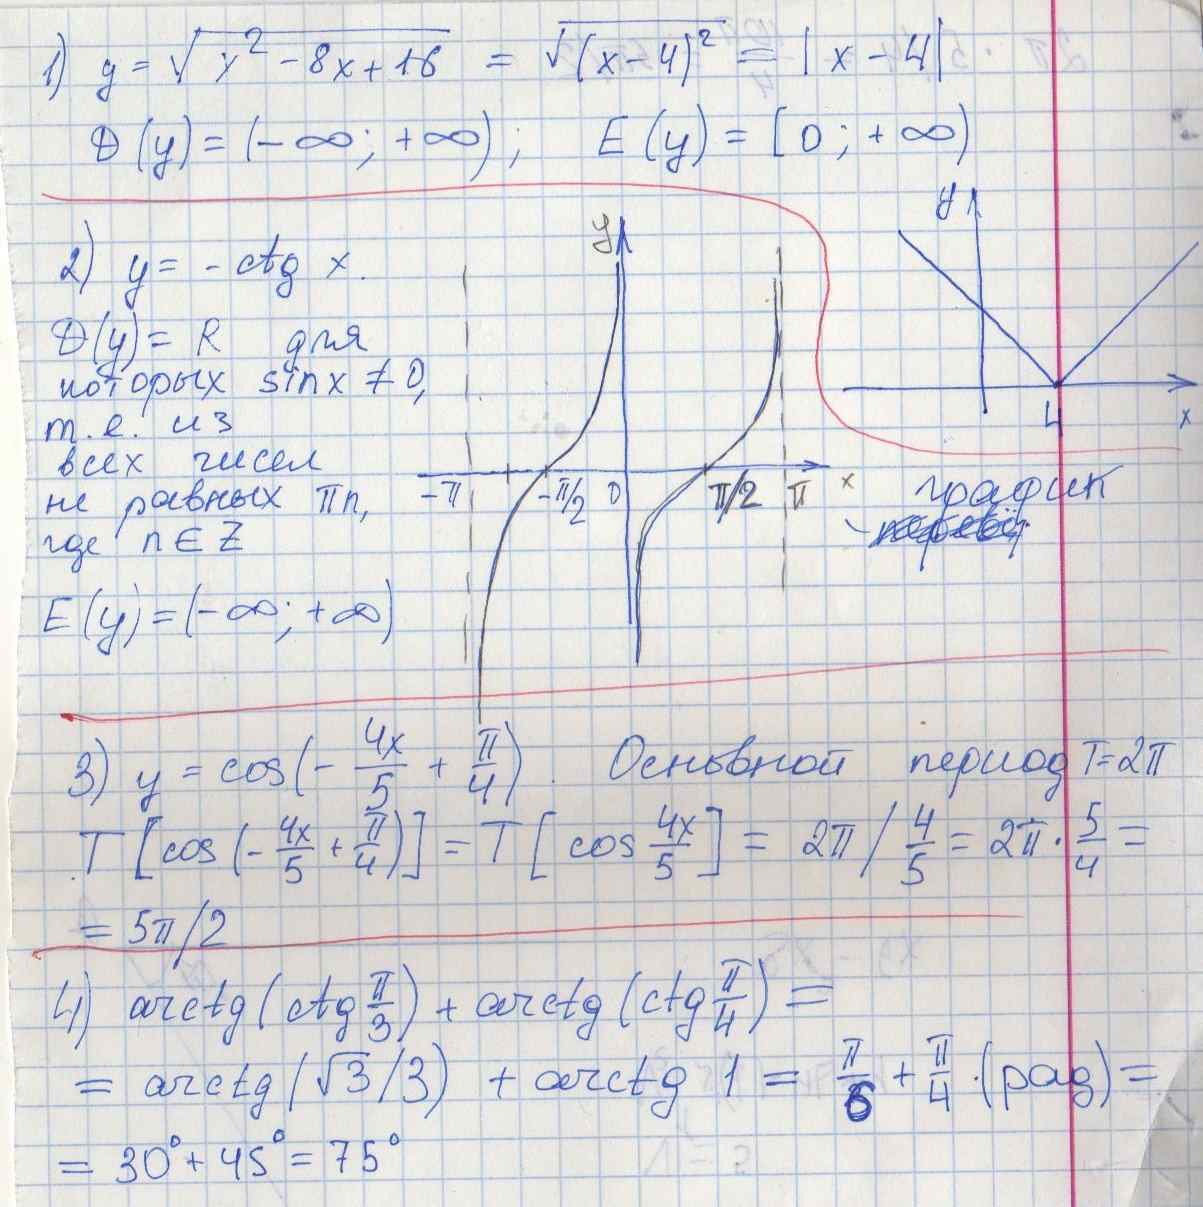 1) y = √(x² - 8x + 16) = √((x - 4)²) = |x - 4|
D(y) = (-∞; +∞); E(y) = [0; +∞)
y
4
x
график
2) y = - ctg x.
D(y) = R для
которых sin x ≠ 0,
т.е. из
всех чисел
не равных πn,
где n ∈ Z
E(y) = (-∞; +∞)
y
-π -π/2 0 π/2 π x
3) y = cos(- 4x/5 + π/4). Основной период T = 2π
T [cos (- 4x/5 + π/4)] = T [cos 4x/5] = 2π / 4/5 = 2π · 5/4 =
= 5π/2
4) arctg(ctg π/3) + arctg(ctg π/4) =
= arctg(√3/3) + arctg 1 = π/6 + π/4 · (рад) =
= 30° + 45° = 75°